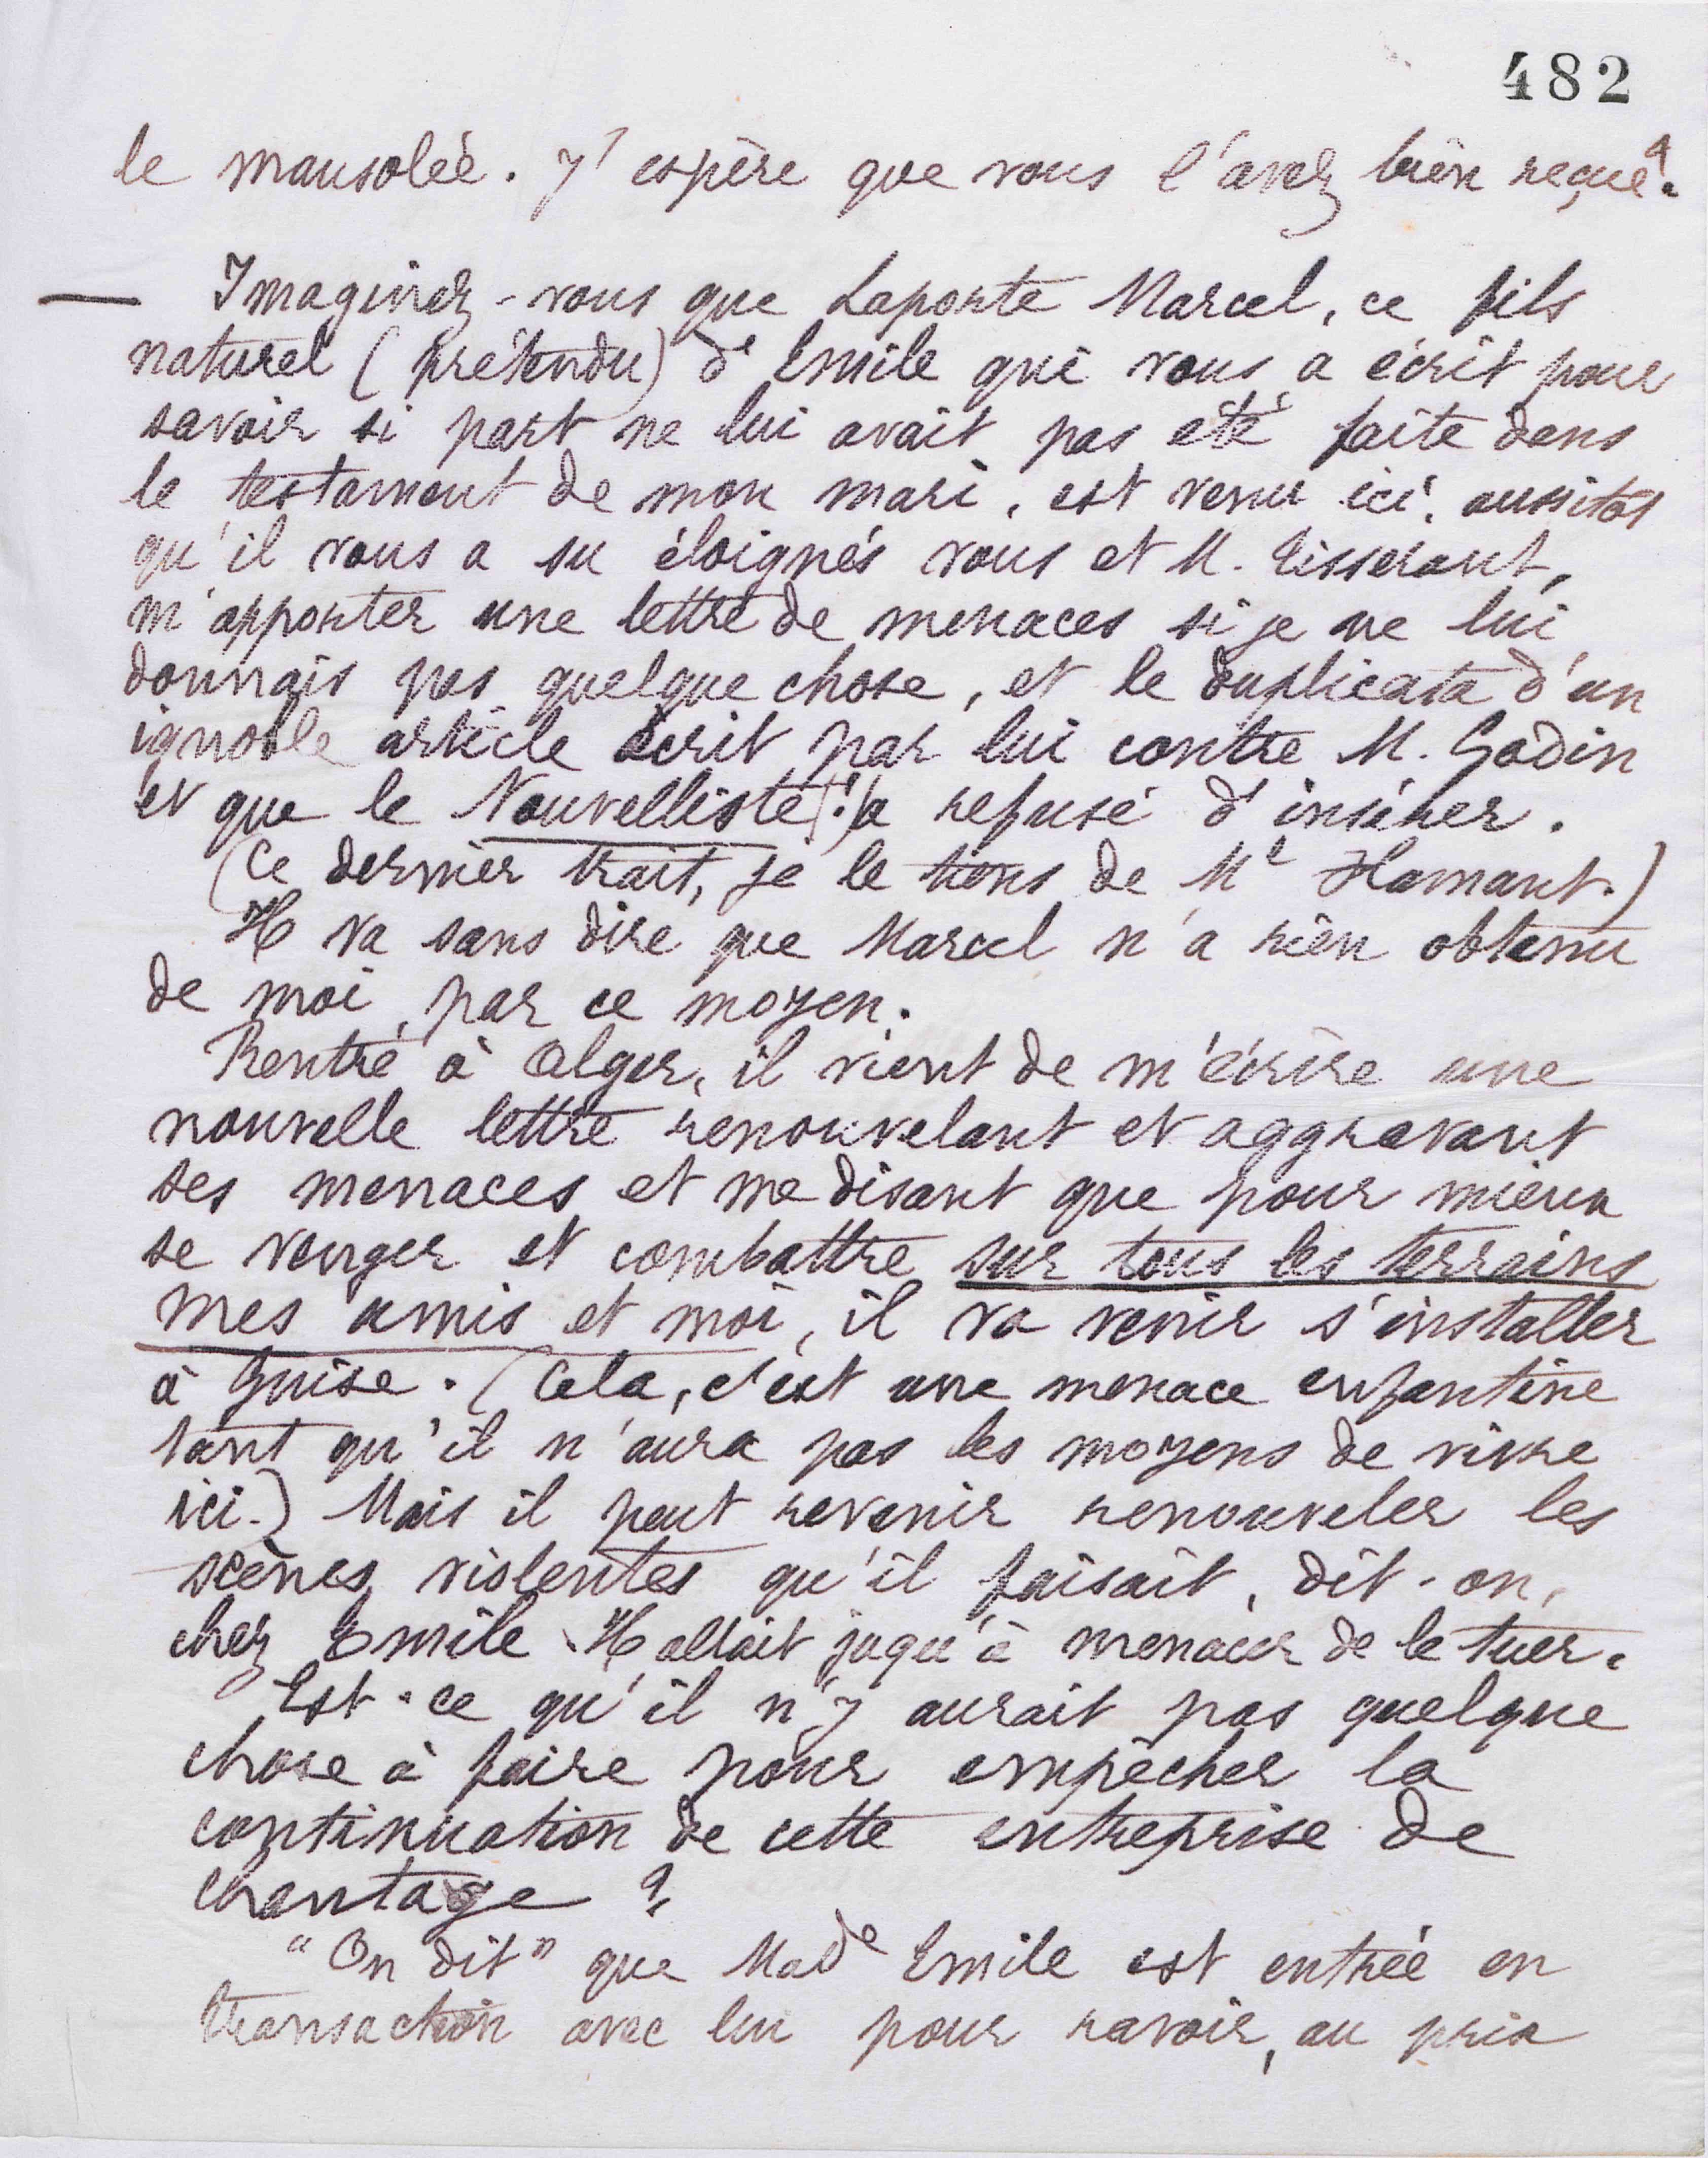 482
le mausolée. J'espère que vous l'avez bien reçue ?
— Imaginez-vous que Laporte Marcel, ce fils
naturel (prétendu) d'Emile qui vous a écrit pour
savoir si part ne lui avait pas été faite dans
le testament de mon mari, est venu ici, aussitôt
qu'il vous a su éloignés vous et M. Tisserant,
m'apporter une lettre de menaces si je ne lui
donnais pas quelque chose, et le duplicata d'un
ignoble article écrit par lui contre M. Godin
et que le Nouvelliste (!) a refusé d'insérer.
(Ce dernier trait, je le tiens de Me Hamant.)
Il va sans dire que Marcel n'a rien obtenu
de moi, par ce moyen.
Rentré à Alger, il vient de m'écrire une
nouvelle lettre renouvelant et aggravant
ses menaces et me disant que pour mieux
se venger et combattre sur tous les terrains
mes amis et moi, il va venir s'installer
à Guise. (Cela, c'est une menace enfantine
tant qu'il n'aura pas les moyens de vivre
ici.) Mais il peut revenir renouveler les
scènes violentes qu'il faisait, dit-on,
chez Emile. Il allait juqu'à menacer de le tuer.
Est-ce qu'il n'y aurait pas quelque
chose à faire pour empêcher la
continuation de cette entreprise de
chantage ?
"On dit" que Made Emile est entrée en
transaction avec lui pour ravoir, au prix